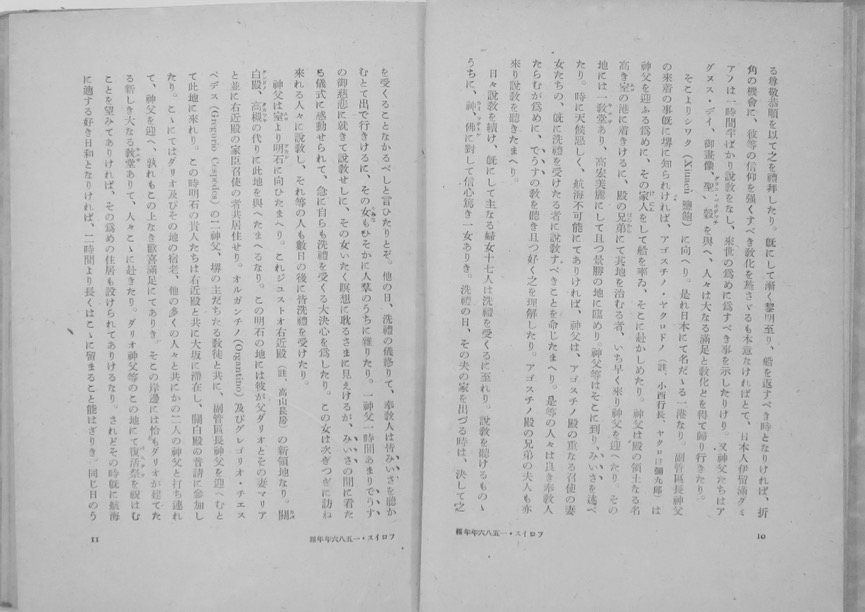 る尊敬恭順を以て之を禮拜したり。旣にして漸く黎明至り、船を返すべき時となりければ、折
角の機會に、彼等の信仰を强くすべき敎化を施さゞるも本意なければとて、日本人伊留滿ダミ
アノは一時間半ばかり說敎をなし、來世の爲めに爲すべき事を示したりけり。又神父たちはア
グヌス・デイ、御畫像、聖觳を與へ、人々は大なる滿足と敎化とを得て歸り行きたり。
そこよりシワク (Ximaci 鹽飽) に向へり。是れ日本にて名だゝる一港なり。副管區長神父
の來着の事旣に堺に知られければ、アゴスチノ・ヤクロドノ (註、小西行長、ヤクロは彌九郎) は
神父を迎ふる爲めに、その家人をして船を率ゐ、そこに赴かしめたり。神父は殿の領土なる名
高き室の港に着きけるに、殿の兄弟にて其地を治むる者、いち早く來り神父を迎へたり。その
地には一敎堂あり、高宏美麗にして且つ景勝の地に臨めり。神父等はそこに到り、みいさを述べ
たり。時に天候惡しく、航海不可能にてありければ、神父は、アゴスチノ殿の重なる召使の妻
女たちの、旣に洗禮を受けたる者に說敎すべきことを命じたまへり。是等の人々は良き奉敎人
たらむが爲めに、でうすの敎を聽き且つ好く之を理解したり。アゴスチノ殿の兄弟の夫人も亦
來り說敎を聽きたまへり。
日々說敎を續け、旣にして主なる婦女十七人は洗禮を受くるに至れり。說敎を聽けるものゝ
うちに、神、佛に對して信心篤き一女ありき。洗禮の日、その夫の家を出づる時は、決して之
フロイス・一五八六年年報
10
を受くることなかるべしと言ひたりとぞ。他の日、洗禮の儀終りて、奉敎人は皆みいさを聽か
むとて出で行きけるに、その女もひそかに人羣のうちに雜りたり。一神父一時間あまりでうす
の御慈悲に就きて說敎せしに、その女いたく瞑想に耽るさまに見えけるが、みいさの間に着た
る儀式に感動せられて、急に自らも洗禮を受くる大決心を爲したり。この女は次ぎつぎに訪ね
來れる人々に說敎し、それ等の人も數日の後に皆洗禮を受けたり。
神父は室より明石に向ひたまへり。これジユストオ右近殿 (註、高山長房) の新領地なり。關
白殿、高槻の代りに此地を與へたまへるなり。この明石の地には彼が父ダリオとその妻マリア
と並に右近殿の家臣召使の者共居住せり。オルガンチノ (Organtino) 及びグレゴリオ・チエス
ペデス (Gregorio Cespedes) の二神父、堺の主だちたる敎徒と共に、副管區長神父を迎へむと
て此地に來れり。この時明石の貴人たちは右近殿と共に大坂に滯在し、關白殿の普請に參加し
たり。こゝにてはダリオ及びその地の宿老、他の多くの人々と共にかの二人の神父と打ち連れ
て、神父を迎へ、孰れもこの上なき歡喜滿足にてありき。そこの岸邊には恰もダリオが建てた
る新しき大なる敎堂ありて、人々こゝに赴きたり。ダリオ神父等のこの地にて復活祭を祝はむ
ことを望みてありければ、その爲めの住居も設けられてありけるなり。されどその時旣に航海
に適する好き日和となりければ、二時間より長くはこゝに留まること能はざりき。同じ日のう
フロイス・一五八六年年報
11